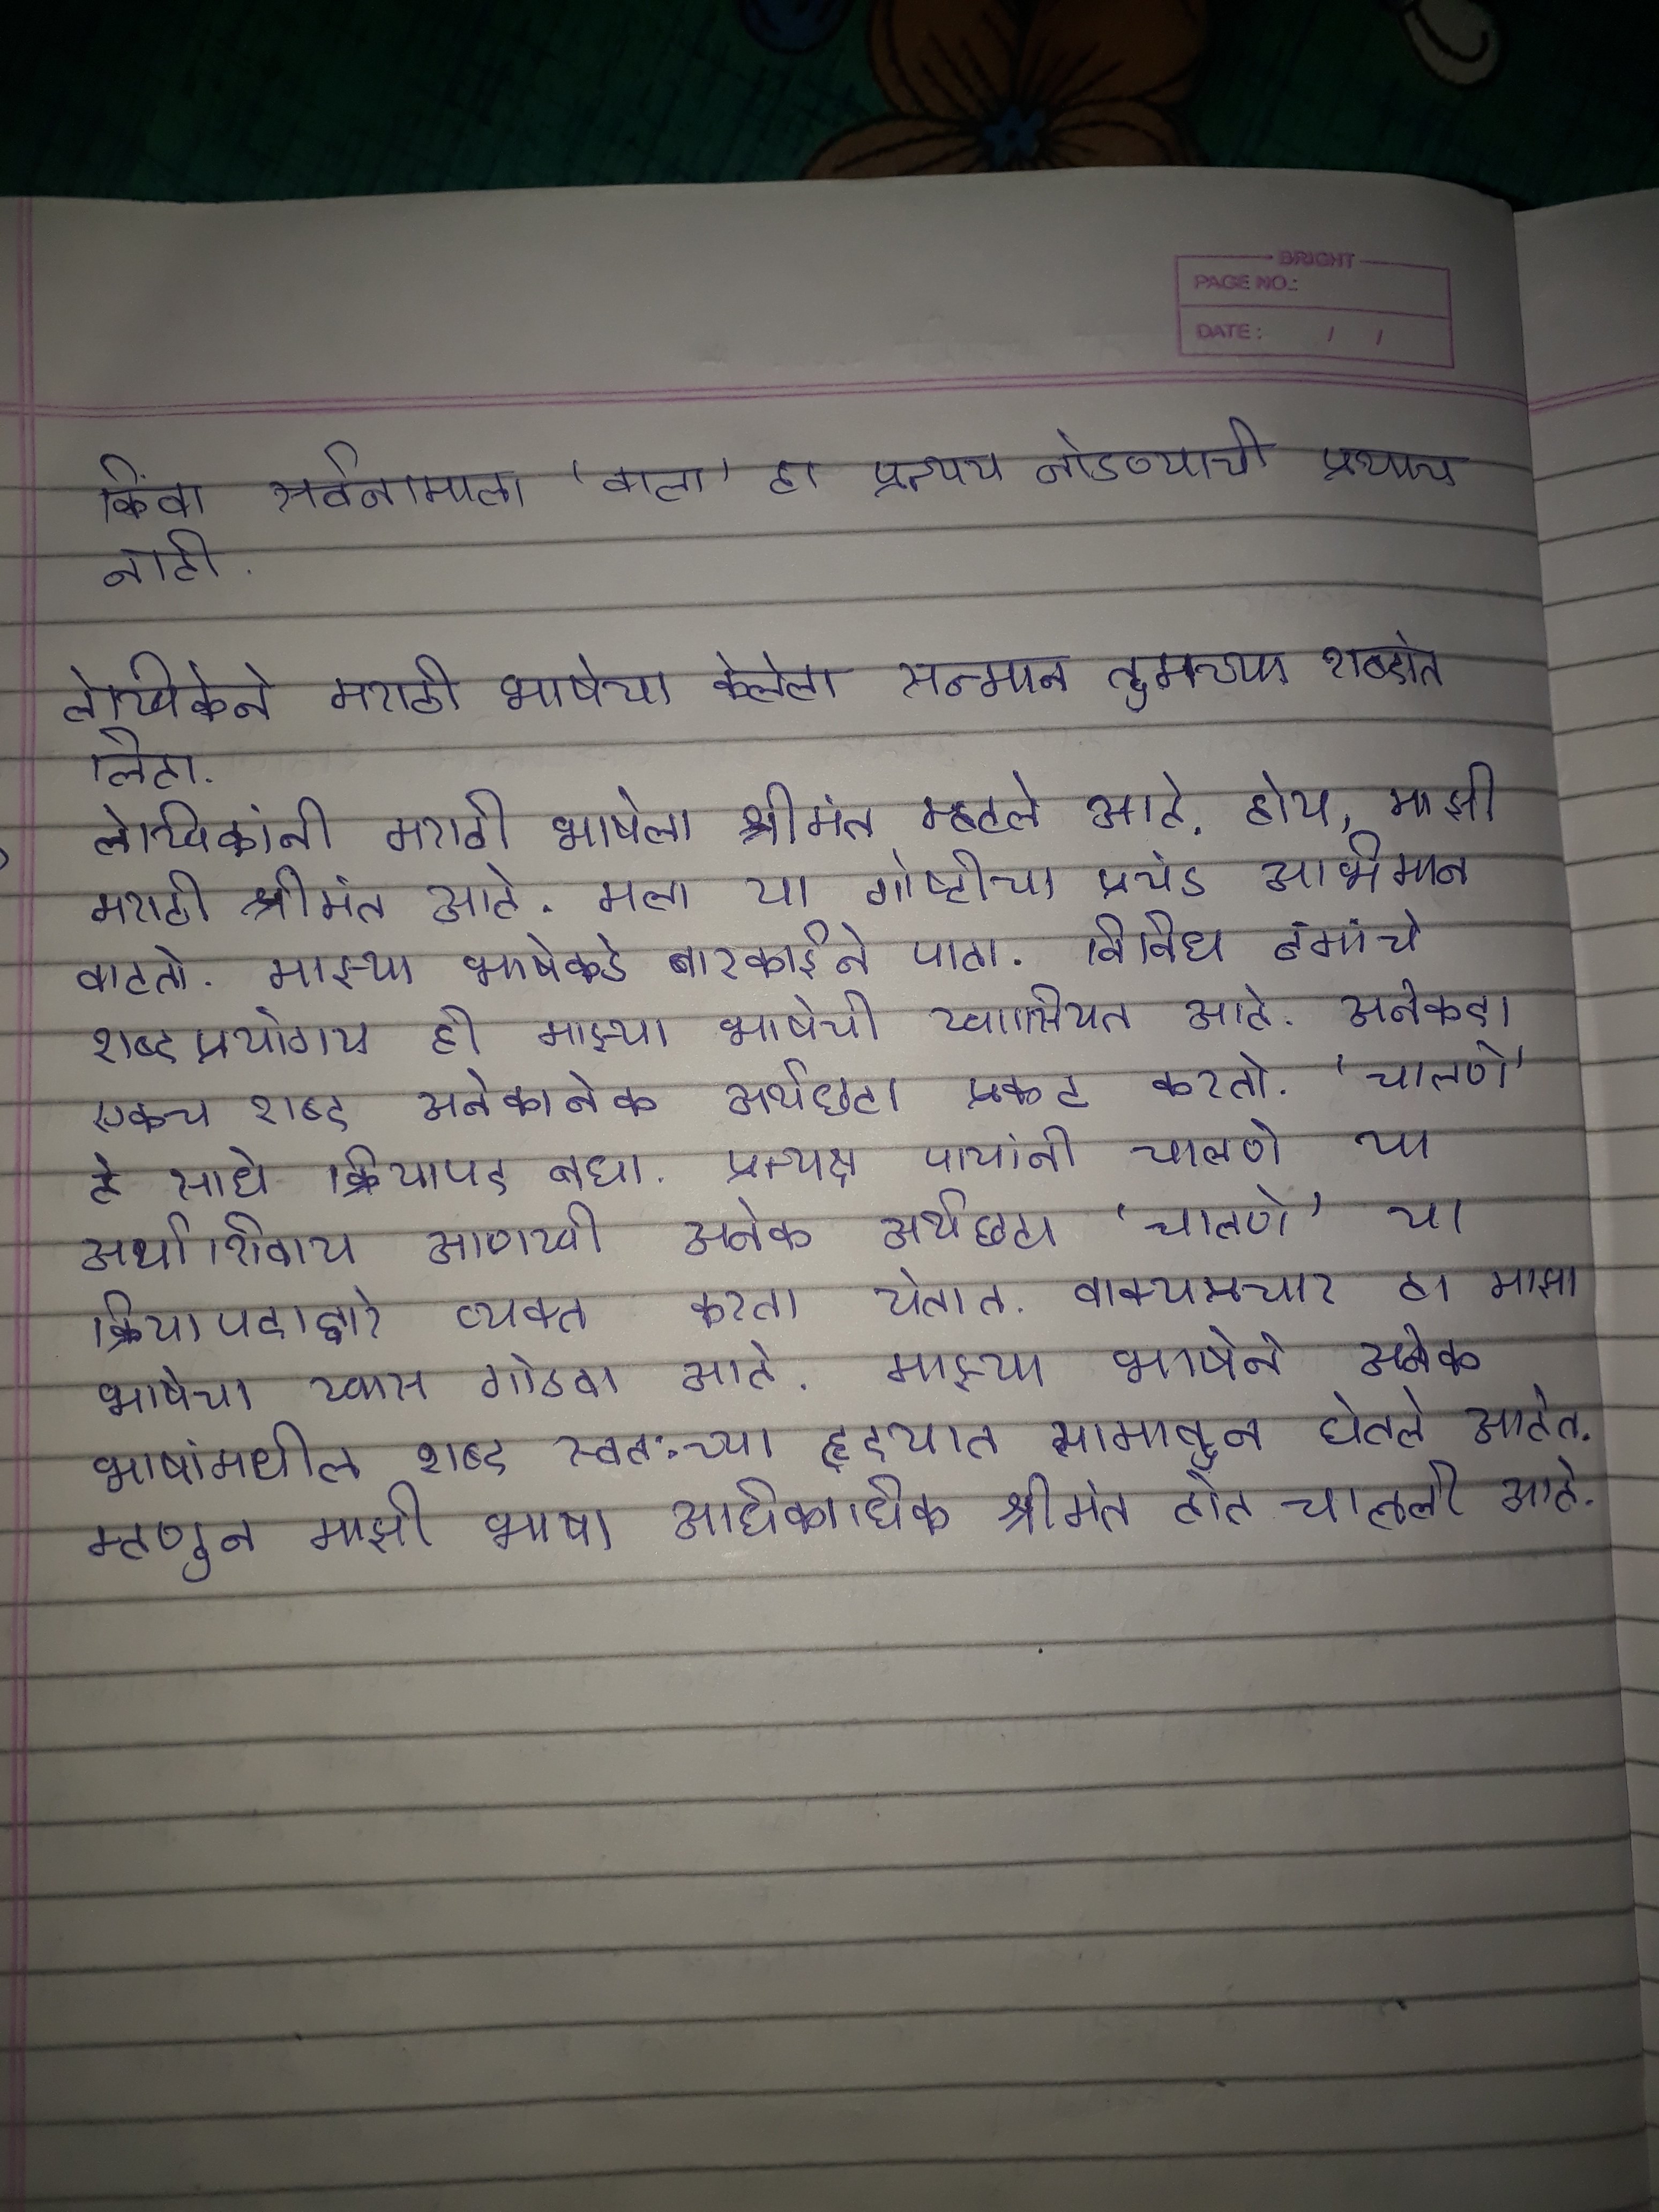 BRIGHT
PAGE NO.:
DATE: / /
किंवा सर्वनामाला 'वाला' हा प्रत्यय जोडण्याची प्रथाच
नाही.
लेखिकेने मराठी भाषेचा केलेला सन्मान तुमच्या शब्दांत
लिहा.
लेखिकांनी मराठी भाषेला श्रीमंत म्हटले आहे. होय, माझी
मराठी श्रीमंत आहे. मला या गोष्टीचा प्रचंड अभिमान
वाटतो. माझ्या भाषेकडे बारकाईने पाहा. विविध ढंगांचे
शब्दप्रयोगय ही माझ्या भाषेची खासियत आहे. अनेकदा
एकच शब्द अनेकानेक अर्थछटा प्रकट करतो. 'चालणे'
हे साधे क्रियापद बघा. प्रत्यक्ष पायांनी चालणे या
अर्थाशिवाय आणखी अनेक अर्थछटा 'चालणे' या
क्रियापदाद्वारे व्यक्त करता येतात. वाक्यप्रचार हा माझा
भाषेचा खास गोडवा आहे. माझ्या भाषेने अनेक
भाषांमधील शब्द स्वतःच्या हृदयात सामावुन घेतले आहेत.
म्हणुन माझी भाषा अधिकाधिक श्रीमंत होत चालली आहे.